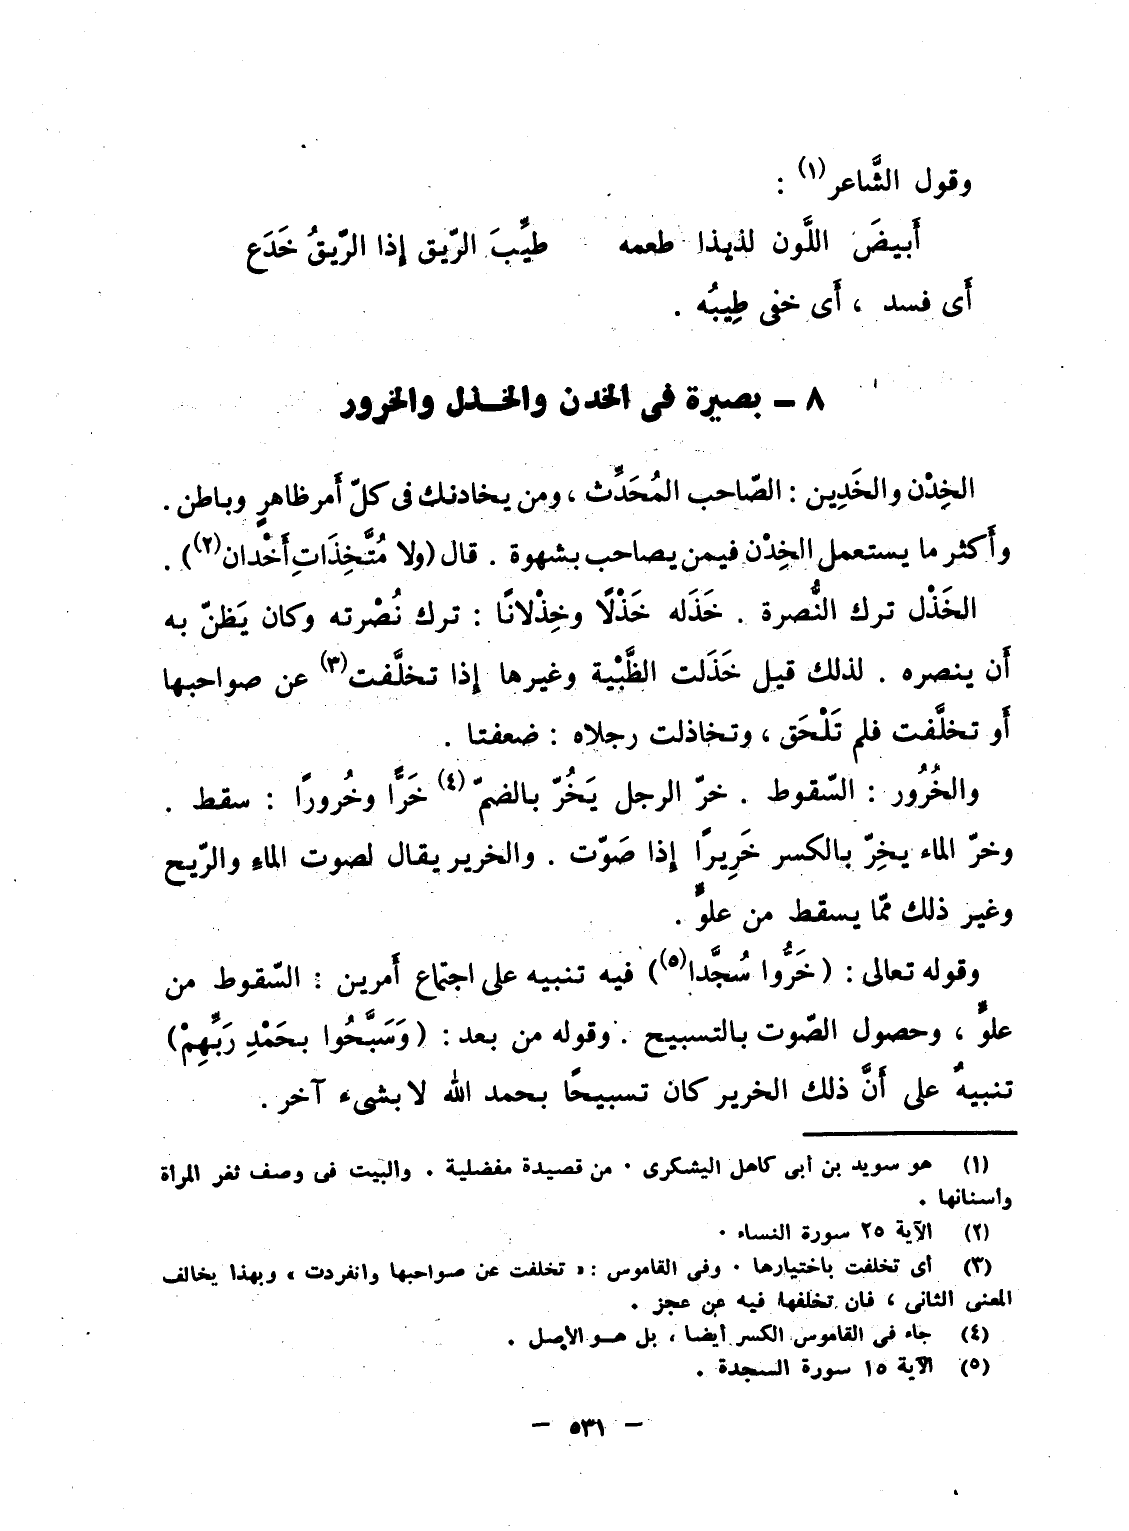 وقول الشَّاعر(١) :
أَبيضَ اللَّون لذيذا طعمه طيِّبَ الرّيق إذا الرّيقُ خَدَع
أَى فسد ، أَى خفى طِيبُه .
٨ - بصيرة فى الخدن والخذل والخرور
الخِدْن والخَدِين : الصّاحب المُحَدِّث ، ومن يخادنك فى كلّ أَمر ظاهرٍ وباطن .
وأَكثر ما يستعمل الخِدْن فيمن يصاحب بشهوة . قال (ولا مُتَّخِذَاتِ أَخْدان(٢)) .
الخَذْل ترك النُّصرة . خَذَله خَذْلًا وخِذْلانًا : ترك نُصْرته وكان يَظنّ به
أَن ينصره . لذلك قيل خَذَلت الظَّبْية وغيرها إِذا تخلَّفت(٣) عن صواحبها
أَو تخلَّفت فلم تَلْحَق ، وتخاذلت رجلاه : ضعفتا .
والخُرُور : السّقوط . خرّ الرجل يَخُرّ بالضمّ(٤) خَرًّا وخُرورًا : سقط .
وخرّ الماء يخِرّ بالكسر خَرِيرًا إِذا صَوّت . والخرير يقال لصوت الماءِ والرّيح
وغير ذلك ممّا يسقط من علوٍّ .
وقوله تعالى : (خَرُّوا سُجَّدا(٥)) فيه تنبيه على اجتماع أَمرين : السّقوط من
علوٍّ ، وحصول الصّوت بالتسبيح . وقوله من بعد : (وَسَبَّحُوا بحَمْدِ رَبِّهِمْ)
تنبيهٌ على أَنَّ ذلك الخرير كان تسبيحًا بحمد الله لا بشىء آخر .
(١) هو سويد بن أبى كاهل اليشكرى . من قصيدة مفضلية . والبيت فى وصف ثغر المرأة
وأسنانها .
(٢) الآية ٢٥ سورة النساء .
(٣) أى تخلفت باختيارها . وفى القاموس : « تخلفت عن صواحبها وانفردت » وبهذا يخالف
المعنى الثانى ، فان تخلفها فيه عن عجز .
(٤) جاء فى القاموس الكسر أيضا ، بل هو الأصل .
(٥) الآية ١٥ سورة السجدة .
- ٥٣١ -